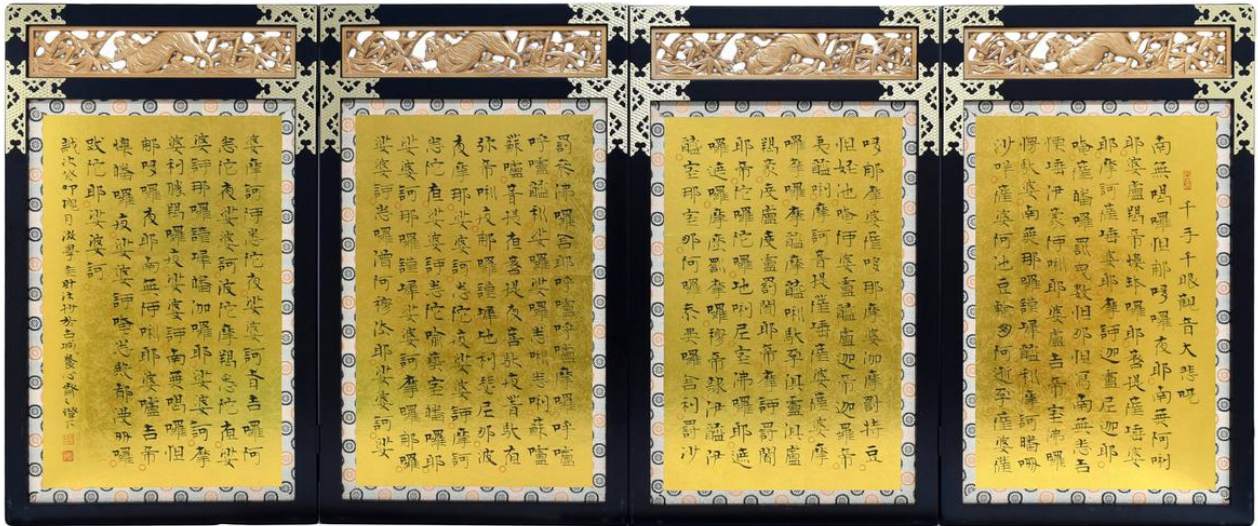 千手千眼觀音大悲呪
南無喝囉怛那哆囉夜耶南無阿唎
耶婆盧羯帝爍鉢囉耶菩提薩埵婆
耶摩訶薩埵婆耶摩訶迦盧尼迦耶
唵薩皤囉罰曳数怛那怛寫南無悉吉
慄埵伊蒙阿唎耶婆盧吉帝室佛囉
愣馱婆南無那囉謹墀醯利摩訶皤哆
沙咩薩婆阿他豆輸朋阿逝孕薩婆薩
哆那摩婆薩哆那摩婆伽摩罰特豆
怛姪他唵阿婆盧醯盧迦帝迦羅帝
夷醯唎摩訶菩提薩埵薩婆薩婆摩
囉摩囉摩醯摩醯唎馱孕俱盧俱盧
羯蒙度盧度盧罰闍耶帝摩訶罰闍
耶帝陀囉陀囉地唎尼室佛囉耶遮
囉遮囉摩麼罰摩囉穆帝隸伊醯伊
醯室那室那阿囉嘇佛囉舍利罰沙
罰嘇佛囉舍耶呼嚧呼嚧摩囉呼嚧
呼嚧醯利娑囉娑囉悉唎悉唎蘇嚧
蘇嚧菩提夜菩提夜菩馱夜菩馱夜
弥帝唎夜那囉謹墀地利瑟尼那波
夜摩那娑婆訶悉陀夜娑婆訶摩訶
悉陀夜娑婆訶悉陀喻藝室皤囉耶
娑婆訶那囉謹墀娑婆訶摩囉那囉
娑婆訶悉囉僧阿穆佉耶娑婆訶娑
婆摩訶阿悉陀夜娑婆訶者吉囉阿
悉陀夜娑婆訶波陀摩羯悉陀夜娑
婆訶那囉謹墀皤伽囉耶娑婆訶摩
婆利勝羯囉夜娑婆訶南無喝囉怛
那哆囉夜耶南無阿唎耶婆嚧吉帝
爍皤囉夜娑婆訶唵悉殿都漫哆囉
跋陀耶娑婆訶